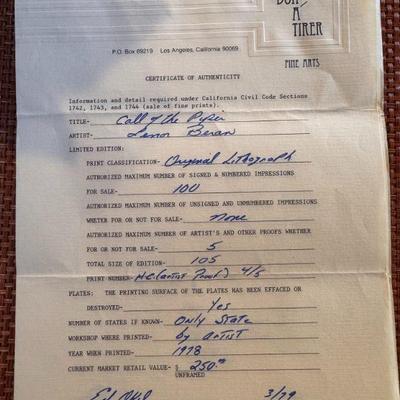 BON
A
TIRER
P.O. Box 69219 Los Angeles, California 90069
FINE ARTS
CERTIFICATE OF AUTHENTICITY
Information and detail required under California Civil Code Sections
1742, 1743, and 1744 (sale of fine prints).
TITLE- Call of the Piper
ARTIST- Lenor Beran
LIMITED EDITION:
PRINT CLASSIFICATION- Original Lithograph
AUTHORIZED MAXIMUM NUMBER OF SIGNED & NUMBERED IMPRESSIONS
FOR SALE- 100
AUTHORIZED MAXIMUM NUMBER OF UNSIGNED AND UNNUMBERED IMPRESSIONS
WHETER FOR OR NOT FOR SALE- none
AUTHORIZED MAXIMUM NUMBER OF ARTIST'S AND OTHER PROOFS WHETHER
FOR OR NOT FOR SALE- 5
TOTAL SIZE OF EDITION- 105
PRINT NUMBER- H.C. (artist Proof) 4/5
PLATES: THE PRINTING SURFACE OF THE PLATES HAS BEEN EFFACED OR
DESTROYED- Yes
NUMBER OF STATES IF KNOWN- Only State
WORKSHOP WHERE PRINTED- by artist
YEAR WHEN PRINTED- 1978
CURRENT MARKET RETAIL VALUE- $ 250.00
UNFRAMED
3/79